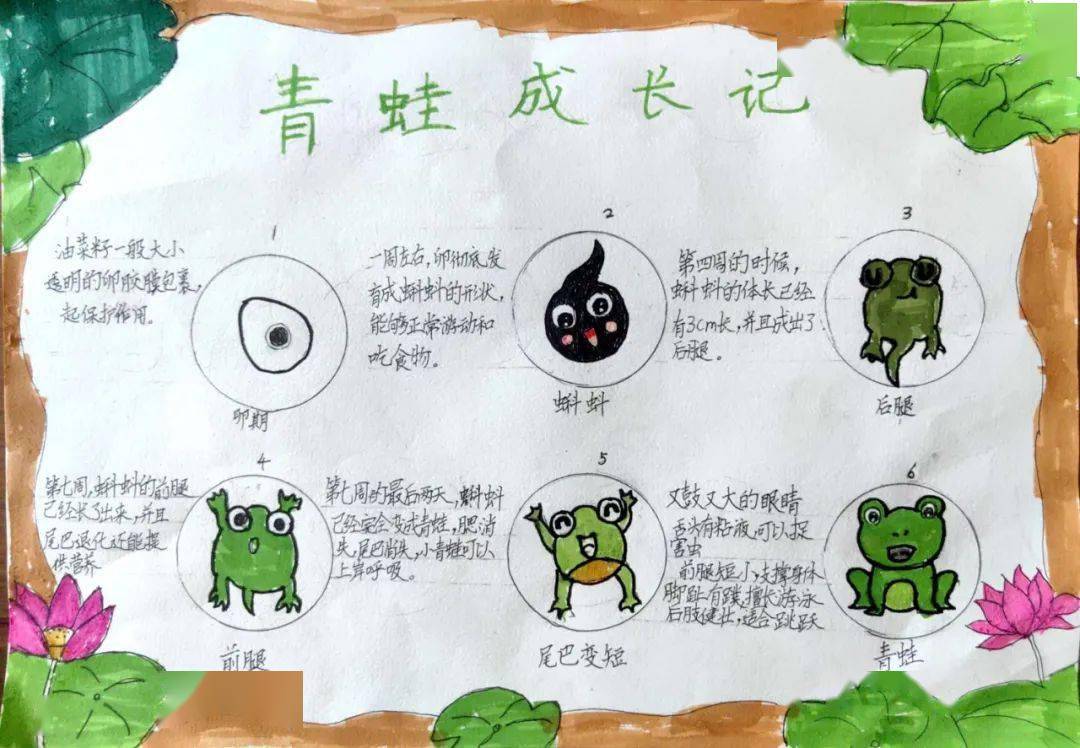 青蛙成长记
1
油菜籽一般大小
透明的卵胶膜包裹,
起保护作用。
卵期
2
一周左右,卵彻底发
育成蝌蚪的形状,
能够正常游动和
吃食物。
蝌蚪
3
第四周的时候,
蝌蚪的体长已经
有3cm长,并且成出了
后腿。
后腿
4
第七周,蝌蚪的前腿
已经长了出来,并且
尾巴退化还能提
供营养
前腿
5
第七周的最后两天,蝌蚪
已经完全变成青蛙,肥消
失,尾巴消失,小青蛙可以
上岸呼吸。
尾巴变短
6
又鼓又大的眼睛
舌头有粘液,可以捉
害虫
前腿短小,支撑身体
脚趾有蹼,擅长游泳
后肢健壮,适合跳跃
青蛙